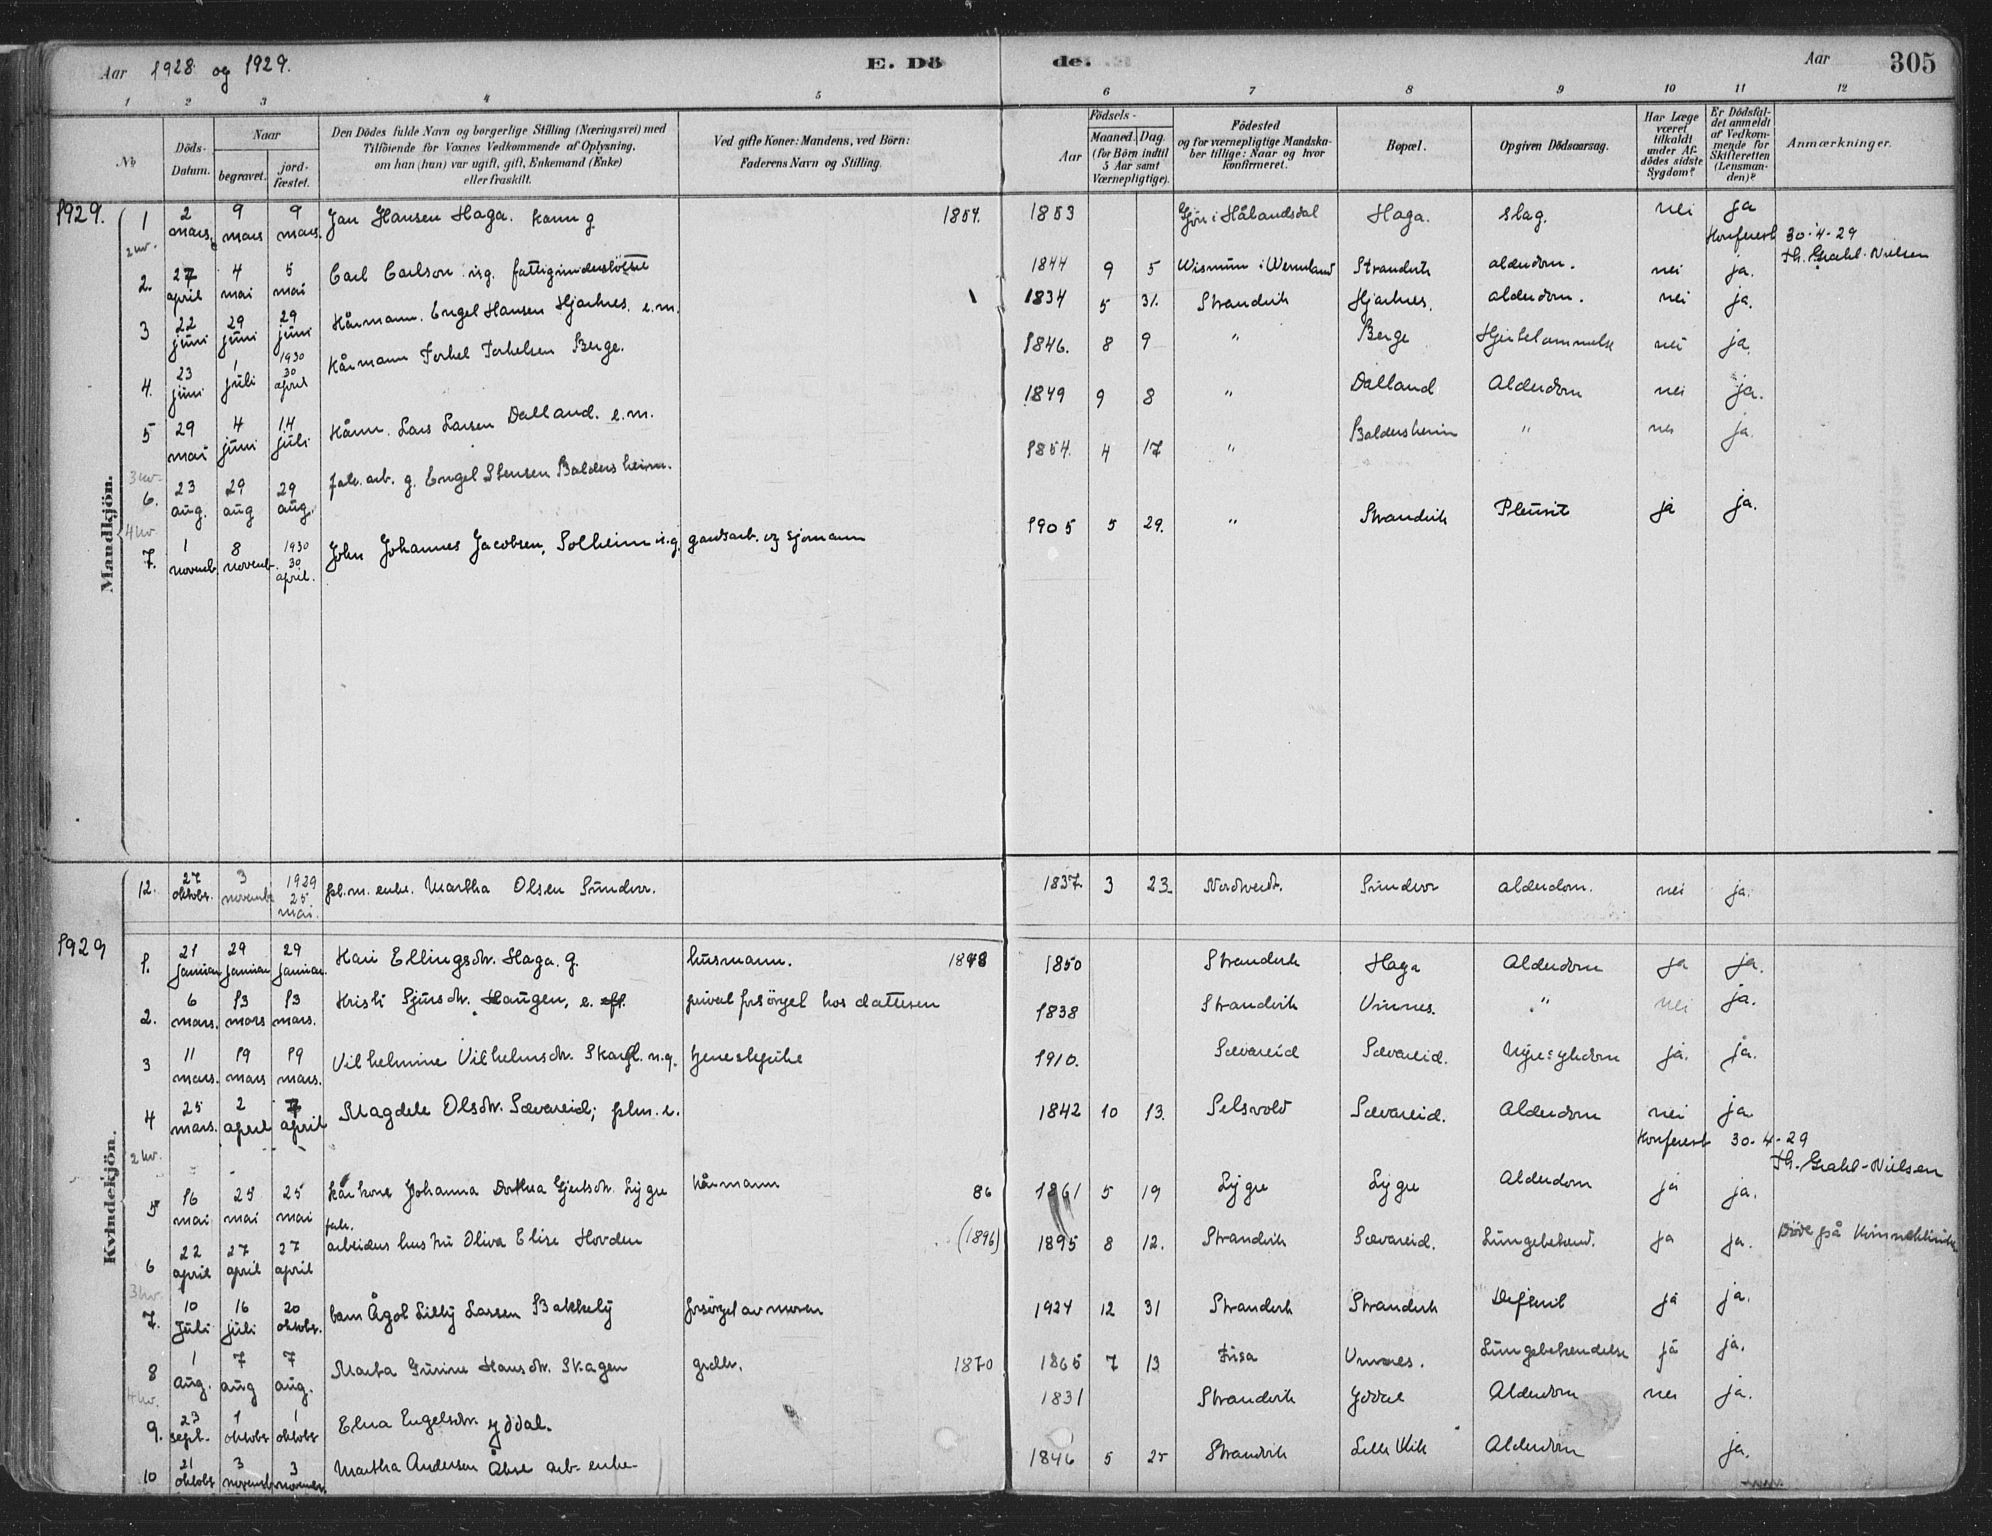 Aar 1928 og 1929. E. Dö de. Aar 305
1 2 3 4 5 6 7 8 9 10 11 12
No
Döds-Datum.
Naar
begravet.
jord-fæstet.
Den Dödes fulde Navn og borgerlige Stilling (Næringsvei) med
Tilföiende for Voxnes Vedkommende af Oplysning,
om han (hun) var ugift, gift, Enkemand (Enke)
eller fraskilt.
Ved gifte Koner: Mandens, ved Börn:
Faderens Navn og Stilling.
Födsels-
Aar
Maaned. Dag.
(for Börn indtil
5 Aar samt
Værnepligtige).
Födested
og for værnepligtige Mandska-
ber tillige: Naar og hvor
konfirmeret.
Bopæl.
Opgiven Dödsaarsag.
Har Læge
været
tilkaldt
under Af-
dödes sidste
Sygdom?
Er Dödsfal-
det anmeldt
af Vedkom-
mende for
Skifteretten
(Lensman-
den)?
Anmærkninger.
1929.
Mandkjön.
1 2 mars. 9 mars 9 mars. Jan Hansen Haga. kaarm g. 1854. 1853 Gjön i Hålandsdal Haga. slag. nei ja
2 kv. Konferert 30-4-29
Th. Grahl-Nielsen
2. 27 april 4 mai 5 mai Carl Carlson ug. fattigunderstöttet 1844 9 5 Wismum i Wermland Strandvik alderdom. nei ja.
3 22 juni 29 juni 29 juni Kårmann. Engel Hansen Hjartnes. e.m. 1834 5 31. Strandvik Hjartnes. alderdom. nei ja.
4. 23 juni 1 juli 1930 30 april Kårmann Torkel Torkelsen Berge. 1846. 8 9 " Berge Hjertelammelse nei ja
5 29 mai 4 juni 14 juli Kårm. Lars Larsen Dalland. e.m. 1849 9 8 " Dalland Alderdom nei ja.
3 kv.
6. 23 aug. 29 aug 29 aug. fab. arb. g. Engel Stensen Baldersheim. 1854. 4 17 " Baldersheim " nei ja.
4 kv
7. 1 novemb. 8 novemb. 1930 30 april. John Johannes Jacobsen, Solheim u.g. gardsarb. og sjømann 1905 5 29. " Strandvik Pleurit ja ja.
Kvindekjön.
12. 27 oktobr. 3 novembr 1929 25 mai. fol.m. enke. Martha Olsen Sundvor. 1837 3 23. Nordtveit. Sundvor alderdom. nei ja.
1929
1. 21 januar 29 januar 29 januar. Kari Ellingsdtr. Haga. g. husmann. 1848 1850 Strandvik Haga Alderdom ja ja.
2. 6 mars. 13 mars 13 mars. Kristi Sjursdtr. Haugen, e. privat forsörget hos datteren 1838 Strandvik Vinnes. " nei ja.
3 11 mars. 19 mars 19 mars. Vilhelmine Vilhelmsdtr. u.g. tjenestepike 1910. Sævareid Sævareid. Nyresykdom ja. ja.
4 25 mars. 2 april 7 april Magdele Olsdtr. Sævareid; e. 1842 10 13. Selsvold Sævareid. Alderdom nei ja
2 kv. Konferert 30-4-29
Th. Grahl-Nielsen
5 16 mai 25 mai 25 mai kårkone Johanna Dorthea Gjertsdtr. Lygre kårmann 86 1861 5 19 Lygre Lygre Alderdom ja ja.
6 22 april 27 april 27 april fabr. arbeiders hustru Oliva Elise Hovden (1896) 1895 8 12. Strandvik Sævareid. Lungebetend. ja ja. Döde på Kvinneklinikk
3 kv.
7. 10 juli 16 juli 20 oktobr. barn Ågot Lilly Larsen Bakkely forsörget av moren 1924 12 31 Strandvik Strandvik Difterit ja ja.
8 1 aug. 7 aug 7 aug. Marta Gurine Hansdtr. Skagen grdbr. 1870 1865 7 13 Fusa Vinnes. Lungebetendelse ja ja.
4 kv.
9. 23 sept. 1 oktobr 1 oktobr Elna Engelsdtr. Yddal. 1831 Strandvik Yddal Alderdom nei ja.
10 21 oktobr 3 novemb. 3 november. Martha Andersen Åkre arb. enke 1846 5 25 Strandvik Alderdom ja.